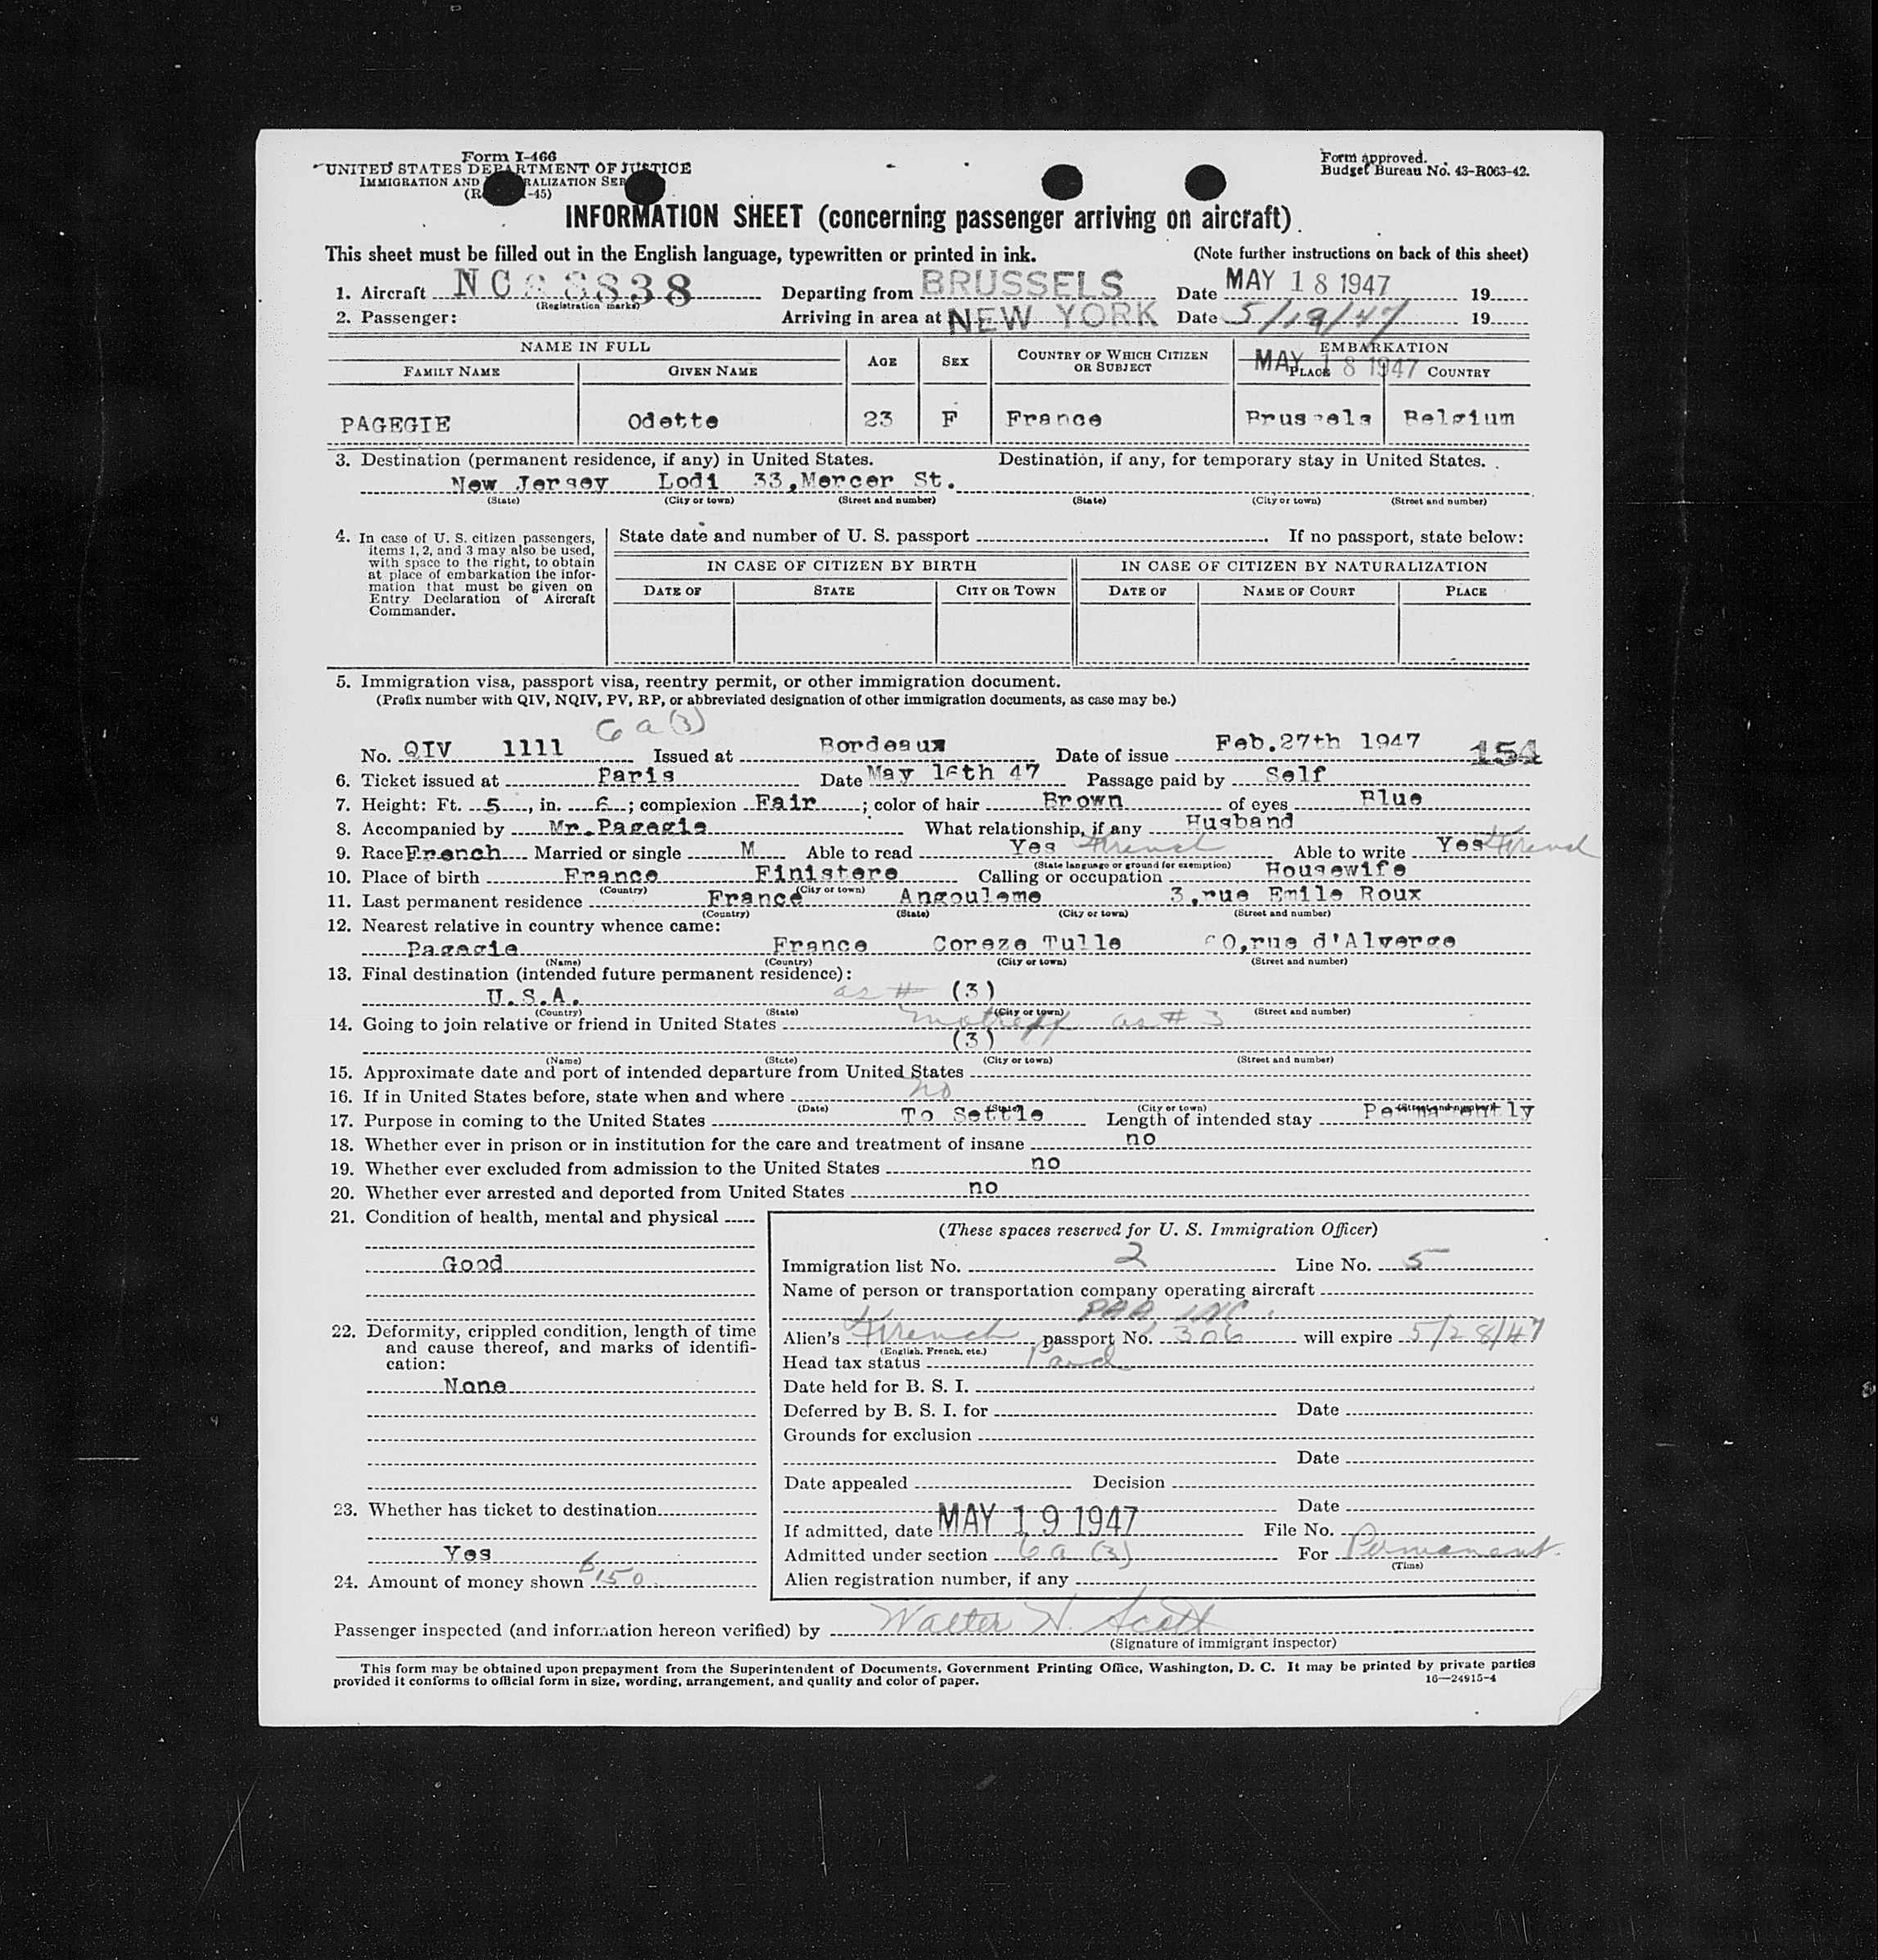 Form I-466
UNITED STATES DEPARTMENT OF JUSTICE
IMMIGRATION AND NATURALIZATION SER
-45)
Form approved.
Budget Bureau No. 43-R063-42.
INFORMATION SHEET (concerning passenger arriving on aircraft)
This sheet must be filled out in the English language, typewritten or printed in ink. (Note further instructions on back of this sheet)
1. Aircraft NC 8838 Departing from BRUSSELS Date MAY 18 1947 19
(Registration marks)
2. Passenger: Arriving in area at NEW YORK Date 5/19/47 19
NAME IN FULL AGE SEX COUNTRY OF WHICH CITIZEN OR SUBJECT EMBARKATION
MAY 18 1947
FAMILY NAME GIVEN NAME PLACE COUNTRY
PAGEGIE Odette 23 F France Brussels Belgium
3. Destination (permanent residence, if any) in United States. Destination, if any, for temporary stay in United States.
New Jersey Lodi 33,Mercer St.
(State) (City or town) (Street and number) (State) (City or town) (Street and number)
4. In case of U. S. citizen passengers, items 1, 2, and 3 may also be used, with space to the right, to obtain at place of embarkation the information that must be given on Entry Declaration of Aircraft Commander.
State date and number of U. S. passport If no passport, state below:
IN CASE OF CITIZEN BY BIRTH IN CASE OF CITIZEN BY NATURALIZATION
DATE OF STATE CITY OR TOWN DATE OF NAME OF COURT PLACE
5. Immigration visa, passport visa, reentry permit, or other immigration document.
(Prefix number with QIV, NQIV, PV, RP, or abbreviated designation of other immigration documents, as case may be.)
6a(3)
No. QIV 1111 Issued at Bordeaux Date of issue Feb.27th 1947 154
6. Ticket issued at Paris Date May 16th 47 Passage paid by Self
7. Height: Ft. 5, in. 6; complexion Fair; color of hair Brown of eyes Blue
8. Accompanied by Mr.Pagegie What relationship, if any Husband
9. Race French Married or single M Able to read Yes French Able to write Yes French
(State language or ground for exemption)
10. Place of birth France Finistere Calling or occupation Housewife
(Country) (City or town)
11. Last permanent residence France Angouleme 3,rue Emile Roux
(Country) (State) (City or town) (Street and number)
12. Nearest relative in country whence came:
Pagegie France Coreze Tulle 0,rue d'Alverge
(Name) (Country) (City or town) (Street and number)
13. Final destination (intended future permanent residence):
U.S.A. as # (3)
(Country) (State) (City or town) (Street and number)
14. Going to join relative or friend in United States as # 3
(3)
(Name) (State) (City or town) (Street and number)
15. Approximate date and port of intended departure from United States
16. If in United States before, state when and where no
(Date) (State) (City or town) (Street and number)
17. Purpose in coming to the United States To Settle Length of intended stay Permanently
18. Whether ever in prison or in institution for the care and treatment of insane no
19. Whether ever excluded from admission to the United States no
20. Whether ever arrested and deported from United States no
21. Condition of health, mental and physical
Good
22. Deformity, crippled condition, length of time and cause thereof, and marks of identification:
None
23. Whether has ticket to destination
Yes
24. Amount of money shown 150
(These spaces reserved for U. S. Immigration Officer)
Immigration list No. 2 Line No. 5
Name of person or transportation company operating aircraft
PAA, INC.
Alien's French passport No. 306 will expire 5/28/47
(English, French, etc.)
Head tax status Paid
Date held for B. S. I.
Deferred by B. S. I. for Date
Grounds for exclusion
Date
Date appealed Decision
Date
If admitted, date MAY 19 1947 File No.
Admitted under section 6a (3) For Permanent.
(Time)
Alien registration number, if any
Passenger inspected (and information hereon verified) by Walter H. Scott
(Signature of immigrant inspector)
This form may be obtained upon prepayment from the Superintendent of Documents, Government Printing Office, Washington, D. C. It may be printed by private parties
provided it conforms to official form in size, wording, arrangement, and quality and color of paper. 16—24915-4